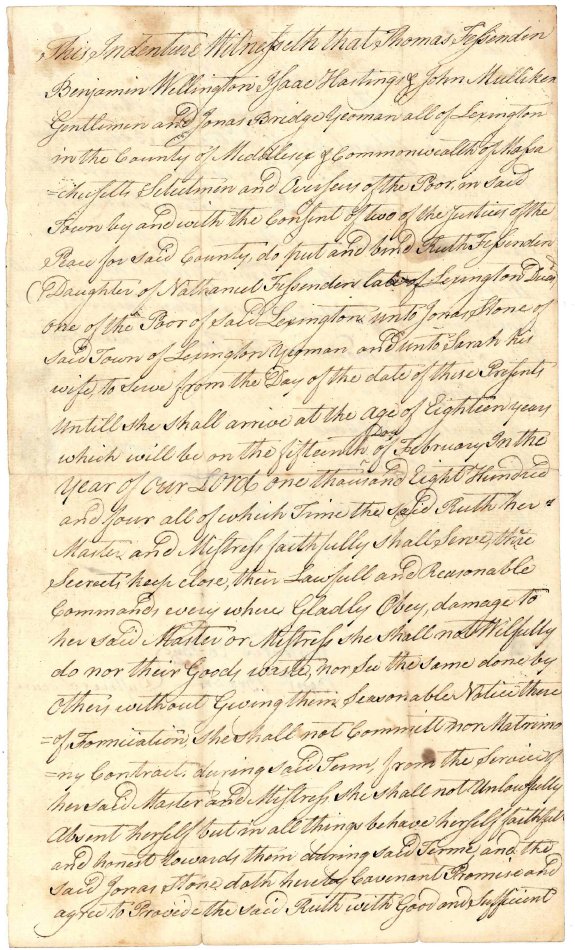 This Indenture Witnesseth that Thomas Fessendin
Benjamin Wellington Isaac Hastings & John Mulliken
Gentlemen and Jonas Bridge Yeoman all of Lexington
in the County of Middlesex & Commonwealth of Massa
=chusetts Selectmen and Overseers of the Poor in said
Town by and with the Consent of two of the Justices of the
Peace for said County, do put and bind Ruth Fessenden
(Daughter of Nathaniel Fessenden late of Lexington Decd)
one of the Poor of said Lexington unto Jonas Stone of
said Town of Lexington Yeoman and unto Sarah his
wife, to serve from the Day of the date of these Presents
Untill she shall arrive at the age of Eighteen years
which will be on the fifteenth Day of February In the
Year of our LORD one thousand Eight Hundred
and four all of which Time the said Ruth her
Master and Mistress faithfully shall Serve, their
Secrets keep close, their Lawfull and Reasonable
Commands every where Gladly Obey, damage to
her said Master or Mistress she shall not Wilfully
do nor their Goods waste, nor see the same done by
others without Giving them Seasonable Notice there
=of Fornication, she shall not Committ nor Matrimo
=ny Contract during said Term, from the Service of
her said Master and Mistress she shall not Unlawfully
Absent herself but in all things behave herself faithful
and honest towards them during said Term, and the
said Jonas Stone doth hereby Covenant Promise and
agree to Provide the said Ruth with Good and Sufficient